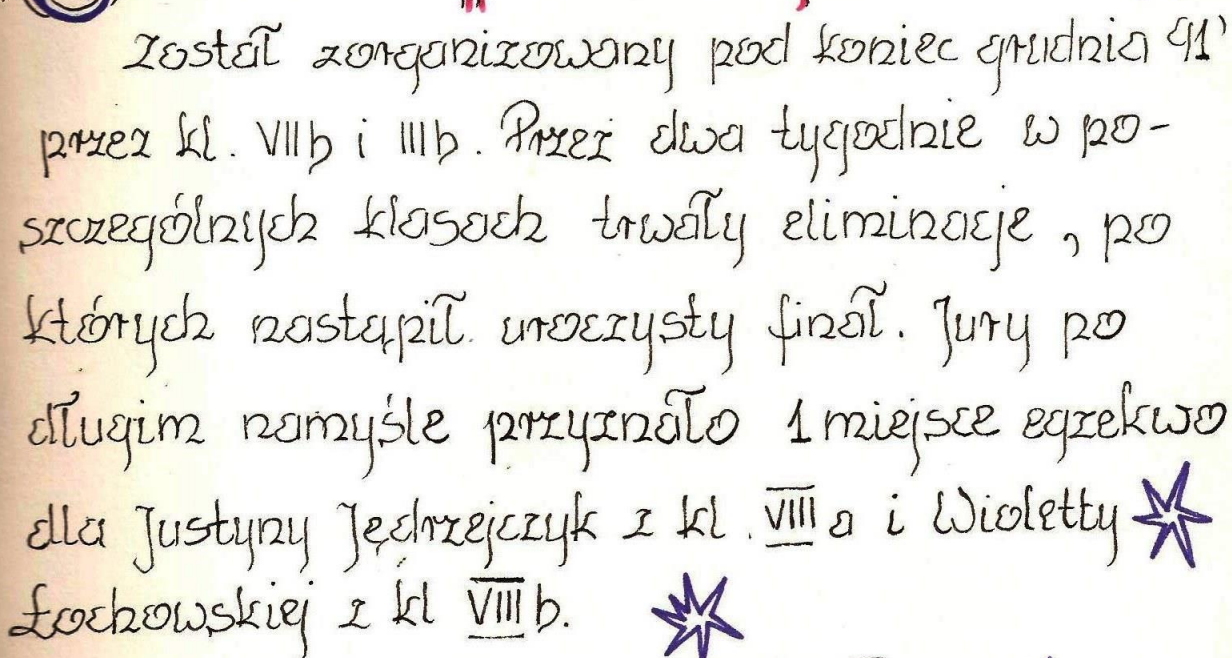 Został zorganizowany pod koniec grudnia 91'
przez kl. VIIb i IIIb. Przez dwa tygodnie w po-
szczególnych klasach trwały eliminacje, po
których nastąpił uroczysty finał. Jury po
długim namyśle przyznało 1 miejsce egzekwo
dla Justyny Jędrzejczyk z kl. VIII a i Wioletty
Łochowskiej z kl VIII b.